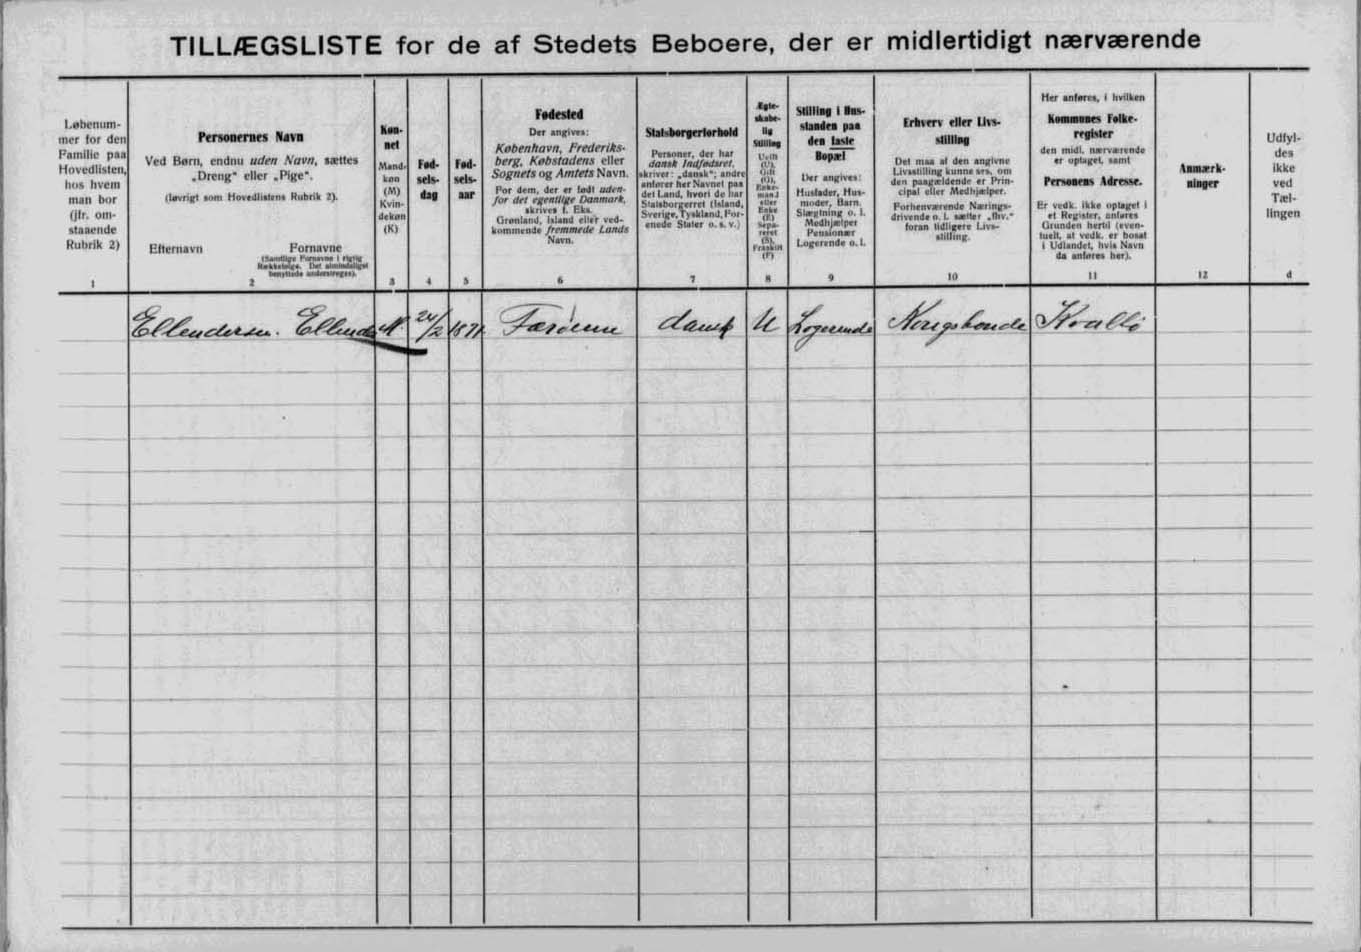 TILLÆGSLISTE for de af Stedets Beboere, der er midlertidigt nærværende
Løbenum-
mer for den
Familie paa
Hovedlisten,
hos hvem
man bor
(jfr. om-
staaende
Rubrik 2)
1
Personernes Navn
Ved Børn, endnu uden Navn, sættes
„Dreng" eller „Pige".
(Iøvrigt som Hovedlistens Rubrik 2).
Efternavn Fornavne
(Samtlige Fornavne i rigtig
Rækkefølge. Det almindeligst
benyttede understreges).
2
Køn-
net
Mand-
køn
(M)
Kvin-
dekøn
(K)
3
Fød-
sels-
dag
4
Fød-
sels-
aar
5
Fødested
Der angives:
København, Frederiks-
berg, Købstadens eller
Sognets og Amtets Navn.
For dem, der er født uden-
for det egentlige Danmark,
skrives f. Eks.
Grønland, Island eller ved-
kommende fremmede Lands
Navn.
6
Statsborgerforhold
Personer, der har
dansk Indfødsret,
skriver: „dansk"; andre
anfører her Navnet paa
det Land, hvori de har
Statsborgerret (Island,
Sverige, Tyskland, For-
enede Stater o. s. v.)
7
Ægte-
skabe-
lig
Stilling
Ugift
(U),
Gift
(G),
Enke-
mand
eller
Enke
(E)
Sepa-
reret
(S),
Fraskilt
(F)
8
Stilling i Hus-
standen paa
den faste
Bopæl
Der angives:
Husfader, Hus-
moder, Barn.
Slægtning o. l.
Medhjælper
Pensionær
Logerende o. l.
9
Erhverv eller Livs-
stilling
Det maa af den angivne
Livsstilling kunne ses, om
den paagældende er Prin-
cipal eller Medhjælper.
Forhenværende Nærings-
drivende o. l. sætter „fhv."
foran tidligere Livs-
stilling.
10
Her anføres, i hvilken
Kommunes Folke-
register
den midl. nærværende
er optaget, samt
Personens Adresse.
Er vedk. ikke optaget i
et Register, anføres
Grunden hertil (even-
tuelt, at vedk. er bosat
i Udlandet, hvis Navn
da anføres her).
11
Anmærk-
ninger
12
Udfyl-
des
ikke
ved
Tæl-
lingen
d
Ellendersen. Ellender M 24/2 1871 Færøerne dansk U Logerende Kongsbonde Kvalbø